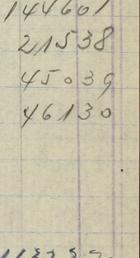 144601
21538
45039
46130